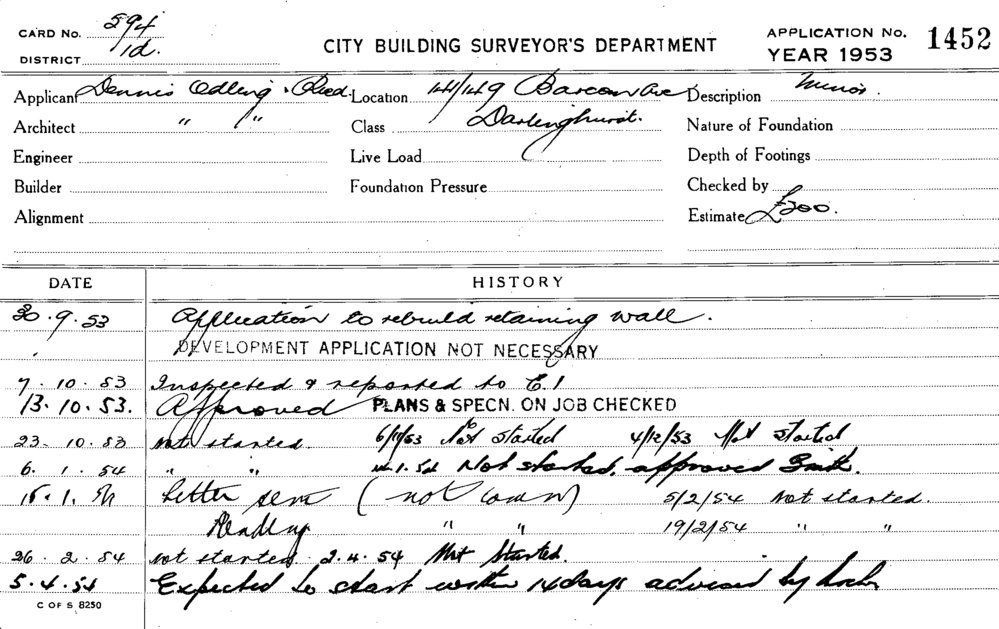 CARD No. 594
DISTRICT 1d.
CITY BUILDING SURVEYOR'S DEPARTMENT
APPLICATION No. 1452
YEAR 1953
Applicant Dennis Odling Location 141/149 Barcom Ave Description Minor.
Architect " " Class Darlinghurst. Nature of Foundation
Engineer Live Load Depth of Footings
Builder Foundation Pressure Checked by
Alignment Estimate £200.
DATE HISTORY
30.9.53 Application to rebuild retaining wall.
DEVELOPMENT APPLICATION NOT NECESSARY
7.10.53 Inspected & reported to C.I
13.10.53. Approved PLANS & SPECN. ON JOB CHECKED
23.10.53 not started. 6/11/53 Not started 4/12/53 Not started
6.1.54 " " Not started, approved
15.1.54 Letter sent (not commn) 5/2/54 Not started.
" " 19/2/54 " "
26.2.54 not started. 2.4.54 Not Started.
5.4.54 Expected to start within 14 days advised by
C OF S 8250